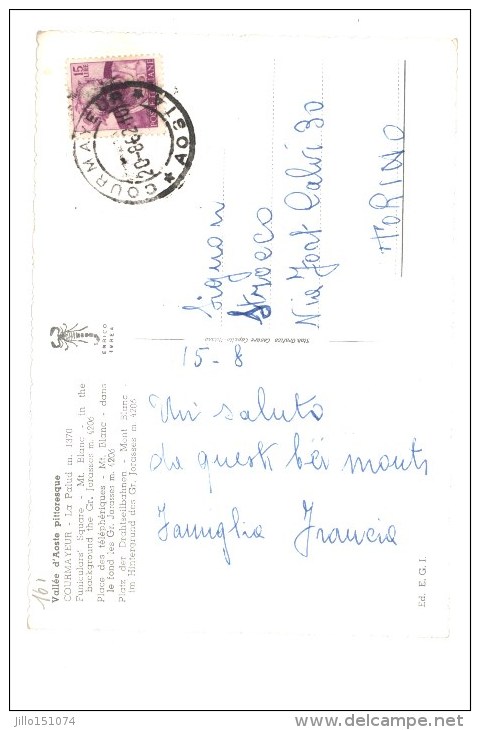 161
Vallée d'Aoste pittoresque
COURMAYEUR - La Palud m. 1370
Funiculars' Square - Mt. Blanc - in the
background the Gr. Jorasses m. 4206
Place des téléphériques - Mt. Blanc - dans
le fond les Gr. Jorasses m. 4206
Platz der Drahtseilbahnen - Mont Blanc -
im Hintergrund des Gr. Jorasses m. 4206
ENRICO
15-8
Un saluto
da questi bei monti
Famiglia Francia
Ed. E. G. I.
15
LIRE
COURMAYEUR
AOSTA
Signori
Strocco
Via Fort Calvi 30
TORINO
jillo151074